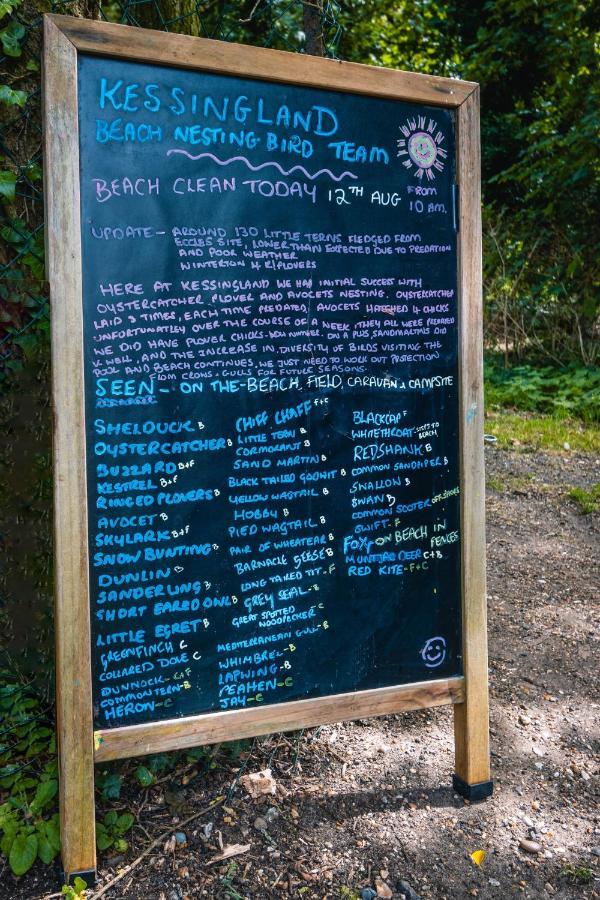 KESSINGLAND
BEACH NESTING BIRD TEAM
BEACH CLEAN TODAY 12TH AUG FROM
10 AM.
UPDATE - AROUND 130 LITTLE TERNS FLEDGED FROM
ECCLES SITE, LOWER THAN EXPECTED DUE TO PREDATION
AND POOR WEATHER
WINTERTON 4 R/PLOVERS
HERE AT KESSINGLAND WE HAD INITIAL SUCCESS WITH
OYSTERCATCHER PLOVER AND AVOCETS NESTING. OYSTERCATCHER
LAID 3 TIMES, EACH TIME PREDATED, AVOCETS HATCHED 4 CHICKS
UNFORTUNATLEY OVER THE COURSE OF A WEEK, THEY ALL WERE PREDATED
WE DID HAVE PLOVER CHICKS - LOW NUMBER. ON A PLUS, SANDMARTINS DID
V. WELL, AND THE INCREASE IN DIVERSITY OF BIRDS VISITING THE
POOL AND BEACH CONTINUES. WE JUST NEED TO WORK OUT PROTECTION
FROM CROWS & GULLS FOR FUTURE SEASONS.
SEEN - ON THE - BEACH, FIELD, CARAVAN & CAMPSITE
SHELDUCK B
OYSTERCATCHER B
BUZZARD B+F
KESTREL B+F
RINGED PLOVERS B
AVOCET B
SKYLARK B+F
SNOW BUNTING B
DUNLIN B
SANDERLING B
SHORT EARED OWL B
LITTLE EGRET B
GREENFINCH C
COLLARED DOVE C
DUNNOCK - C+F
COMMON TERN - B
HERON - C
CHIFF CHAFF F+C
LITTLE TERN B
CORMORANT B
SAND MARTIN B
BLACK TAILED GODWIT B
YELLOW WAGTAIL B
HOBBY B
PIED WAGTAIL B
PAIR OF WHEATEAR B
BARNACLE GEESE B
LONG TAILED TIT - F
GREY SEAL - B
GREAT SPOTTED - C
WOODPECKER
MEDITERRANEAN GULL - B
WHIMBREL - B
LAPWING - B
PEAHEN - C
JAY - C
BLACKCAP F
WHITETHROAT - VISITS TO
BEACH
REDSHANK B
COMMON SANDPIPER B
SWALLOW B
SWAN B
COMMON SCOTER OFFSHORE
SWIFT - F
FOX - ON BEACH IN
FENCES
MUNTJAC DEER C+B
RED KITE - F+C